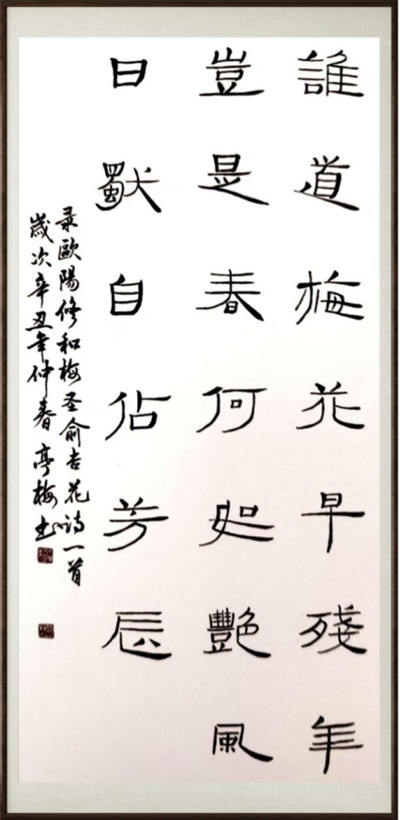 誰道梅花早殘年
豈是春何如艷風
日獨自佔芳辰
录歐陽修和梅圣俞杏花詩一首
歲次辛丑年仲春 亭梅书